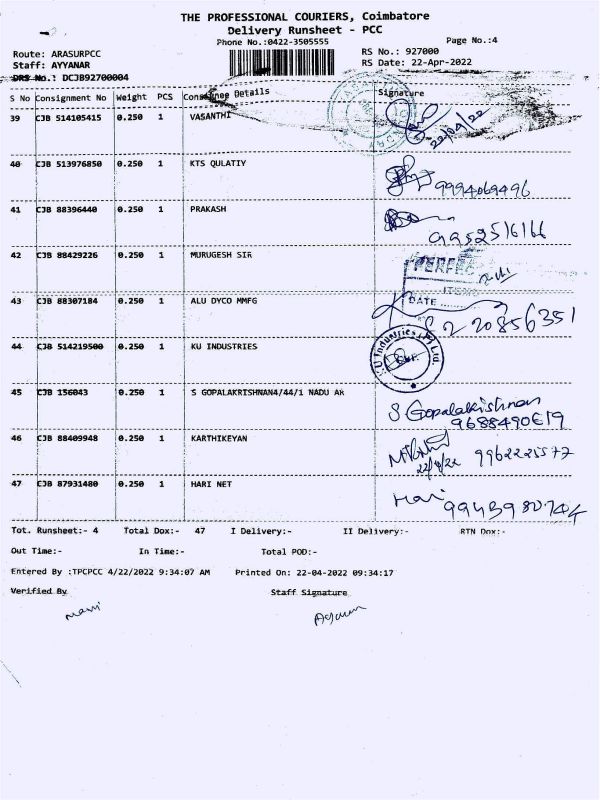 THE PROFESSIONAL COURIERS, Coimbatore
Delivery Runsheet - PCC
Phone No.:0422-3505555
Page No.:4
Route: ARASURPCC
RS No.: 927000
Staff: AYYANAR
RS Date: 22-Apr-2022
DRS No.: DCJB92700004
S No Consignment No Weight PCS Consignee Details Signature
39 CJB 514105415 0.250 1 VASANTHI
22/04/22
40 CJB 513976850 0.250 1 KTS QULATIY
9994069496
41 CJB 88396440 0.250 1 PRAKASH
9952516166
42 CJB 88429226 0.250 1 MURUGESH SIR
43 CJB 88307184 0.250 1 ALU DYCO MMFG
DATE
20856351
44 CJB 514219500 0.250 1 KU INDUSTRIES
45 CJB 156043 0.250 1 S GOPALAKRISHNAN4/44/1 NADU AR
S Gopalakrishnan
46 CJB 88409948 0.250 1 KARTHIKEYAN
22/4/22 9962225577
47 CJB 87931480 0.250 1 HARI NET
Hari
Tot. Runsheet:- 4 Total Dox:- 47 I Delivery:- II Delivery:- RTN Dox:-
Out Time:- In Time:- Total POD:-
Entered By :TPCPCC 4/22/2022 9:34:07 AM Printed On: 22-04-2022 09:34:17
Verified By Staff Signature